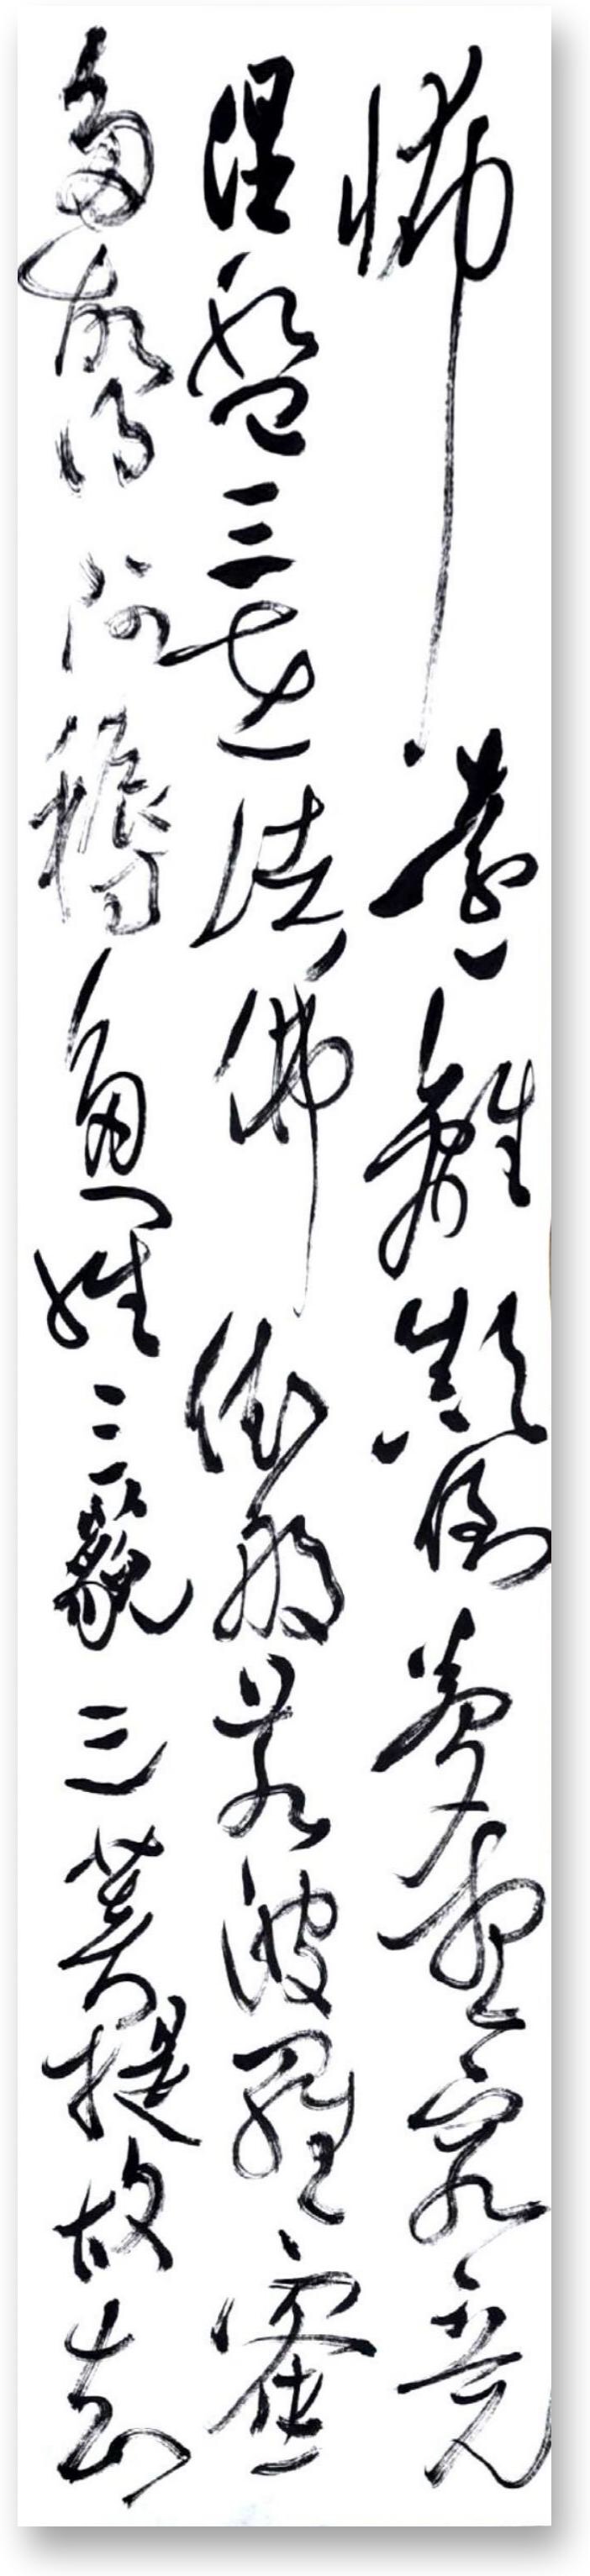 怖遠離顛倒夢想究竟
涅盤三世諸佛依般若波羅蜜
多故得阿耨多羅三藐三菩提故知